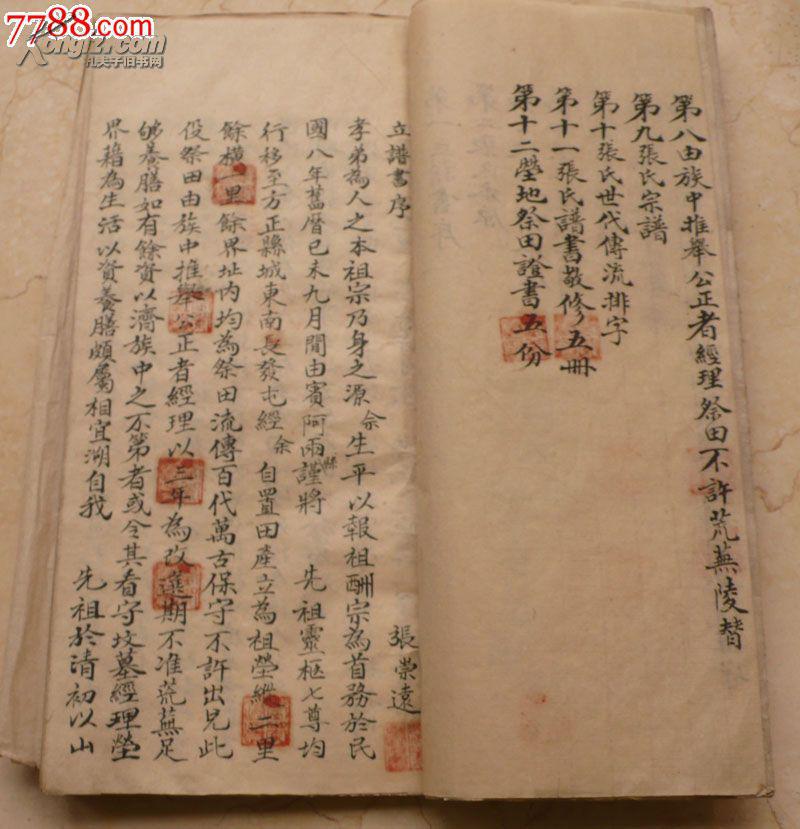 7788.com
孔夫子旧书网
第八由族中推舉公正者經理祭田不許荒蕪陵替
第九張氏宗譜
第十張氏世代傳流排字
第十一張氏譜書敬修五冊
第十二塋地祭田證書五份
立譜書序
張崇遠
孝弟為人之本祖宗乃身之源余生平以報祖酬宗為首務於民
國八年舊曆己未九月間由賓阿兩縣謹將 先祖靈柩七尊均
行移至方正縣城東南長發屯經余自置田產立為祖塋縱二里
餘橫一里餘界址內均為祭田流傳百代萬古保守不許出兄此
役祭田由族中推舉公正者經理以三年為改選期不准荒蕪足
够養膳如有餘資以濟族中之不第者或令其看守坟墓經理塋
界藉為生活以資養膳頗屬相宜溯自我 先祖於清初以山